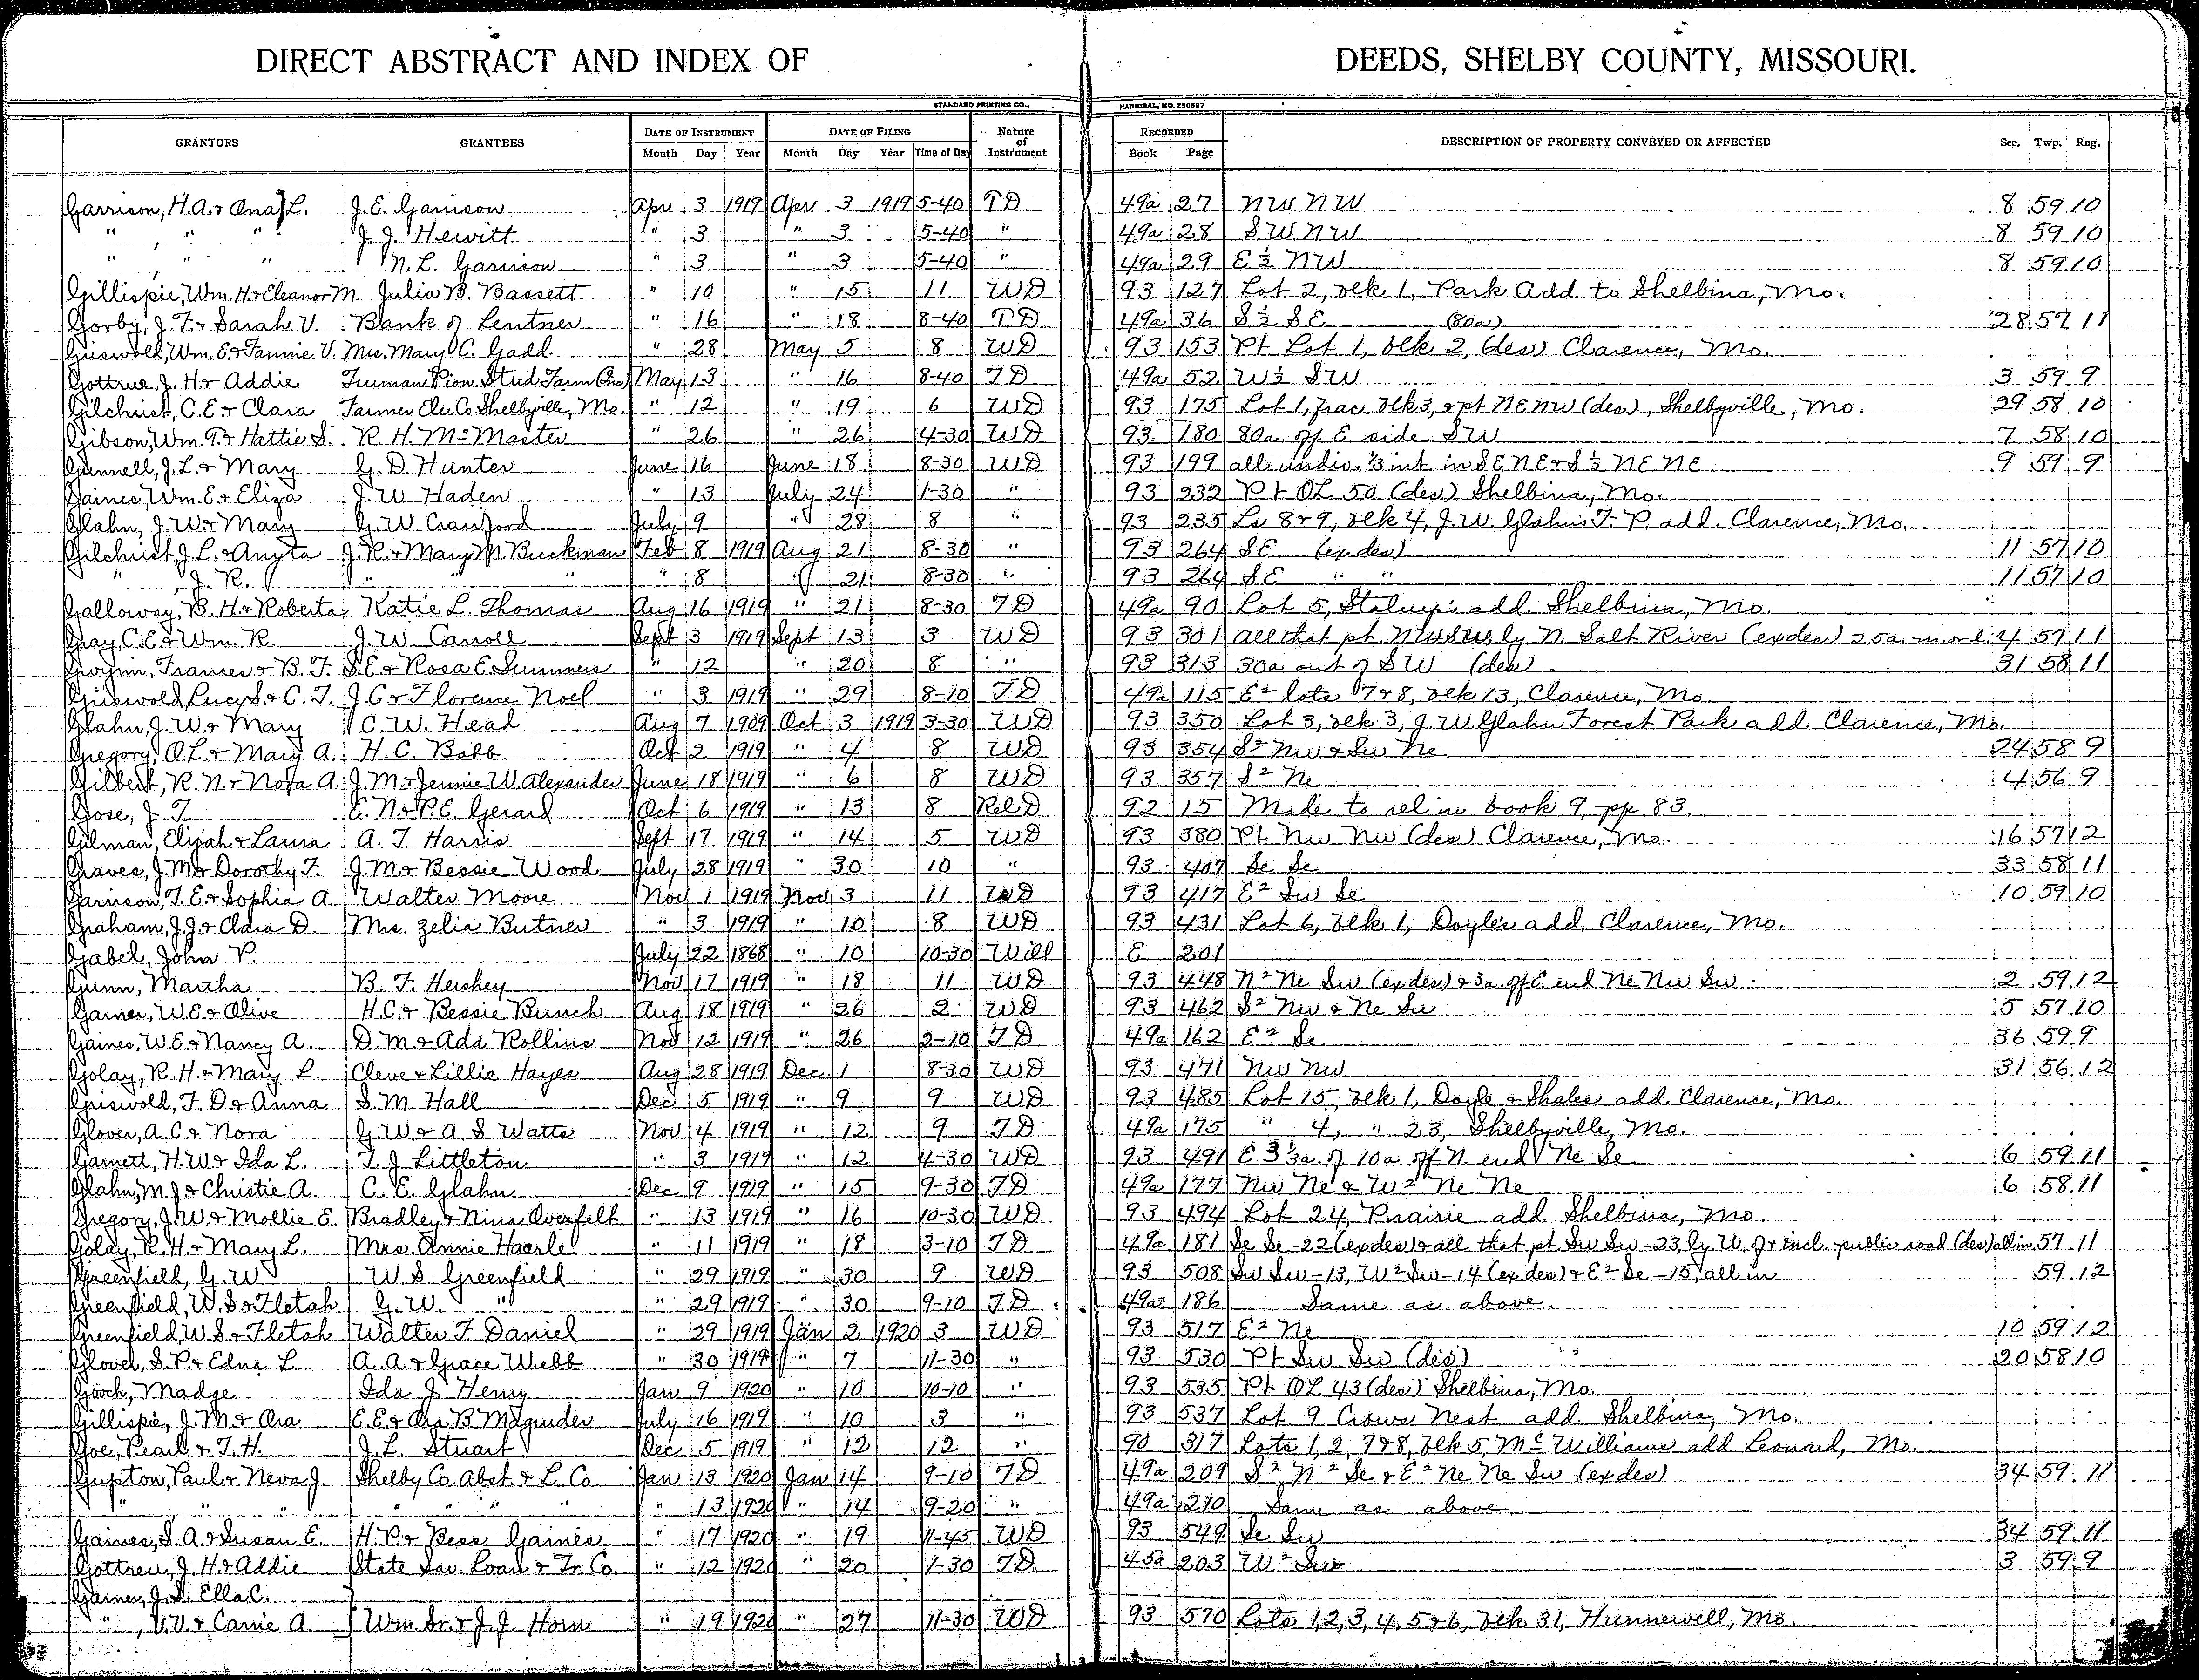 DIRECT ABSTRACT AND INDEX OF DEEDS, SHELBY COUNTY, MISSOURI.
STANDARD PRINTING CO., HANNIBAL, MO. 256697
GRANTORS GRANTEES DATE OF INSTRUMENT DATE OF FILING Nature of Instrument RECORDED DESCRIPTION OF PROPERTY CONVEYED OR AFFECTED Sec. Twp. Rng.
Month Day Year Month Day Year Time of Day Book Page
Garrison, H.A. & Ona L. J. E. Garrison Apr 3 1919 Apr 3 1919 5-40 TD 49a 27 NW NW 8 59 10
" " " J. J. Hewitt " 3 " 3 5-40 " 49a 28 SW NW 8 59 10
" " " N. L. Garrison " 3 " 3 5-40 " 49a 29 E ½ NW 8 59 10
Gillispie, Wm. H. & Eleanor M. Julia B. Bassett " 10 " 15 11 WD 93 127 Lot 2, blk 1, Park Add. to Shelbina, Mo.
Gorby, J. F. & Sarah V. Bank of Lentner " 16 " 18 8-40 TD 49a 36 S ½ SE (80a) 28 57 11
Griswold, Wm. E. & Fannie V. Mrs. Mary C. Gadd " 28 May 5 8 WD 93 153 Pt Lot 1, blk 2, (des) Clarence, Mo.
Gottrue, J. H. & Addie Truman Pion. Stud Farm (Inc) May 13 " 16 8-40 TD 49a 52 W ½ SW 3 59 9
Gilchrist, C. E. & Clara Farmer Ele. Co. Shelbyville, Mo. " 12 " 19 6 WD 93 175 Lot 1, frac. blk 3, & pt NE NW (des), Shelbyville, Mo. 29 58 10
Gibson, Wm. T. & Hattie S. R. H. McMaster " 26 " 26 4-30 WD 93 180 80a. off E side SW 7 58 10
Gunnell, J. L. & Mary G. D. Hunter June 16 June 18 8-30 WD 93 199 all undiv. ⅓ int. in SE NE & S ½ NE NE 9 59 9
Gaines, Wm. E. & Eliza J. W. Haden " 13 July 24 1-30 " 93 232 Pt OL 50 (des) Shelbina, Mo.
Glahn, J. W. & Mary G. W. Crawford July 9 " 28 8 " 93 235 Ls 8 & 9, blk 4, J. W. Glahn's F. P. add. Clarence, Mo.
Gilchrist, J. L. & Anyta J. R. & Mary M. Buckman Feb 8 1919 Aug 21 8-30 " 93 264 SE (ex des) 11 57 10
" J. R. " " " 8 " 21 8-30 " 93 264 SE " " 11 57 10
Galloway, B. H. & Roberta Katie L. Thomas Aug 16 1919 " 21 8-30 TD 49a 90 Lot 5, add. Shelbina, Mo.
Gray, C. E. & Wm. R. J. W. Carroll Sept 3 1919 Sept 13 3 WD 93 301 all that pt. NW SW ly N. Salt River (ex des) 25a. m or l. 4 57 11
Gwynn, Frances & B. F. S. E. & Rosa E. Summers " 12 " 20 8 " 93 313 30a out of SW (des) 31 58 11
Griswold, Lucy S. & C. T. J. C. & Florence Noel " 3 1919 " 29 8-10 TD 49a 115 E² lots 7 & 8, blk 13, Clarence, Mo.
Glahn, J. W. & Mary C. W. Head Aug 7 1909 Oct 3 1919 3-30 WD 93 350 Lot 3, blk 3, J. W. Glahn Forest Park add. Clarence, Mo.
Gregory, O. L. & Mary A. H. C. Babb Oct 2 1919 " 4 8 WD 93 354 S² NW & SW NE 24 58 9
Gilbert, R. N. & Nora A. J. M. & Jennie W. Alexander June 18 1919 " 6 8 WD 93 357 S² NE 4 56 9
Gose, J. T. E. N. & P. E. Gerard Oct 6 1919 " 13 8 Rel D 92 15 Made to rel in book 9, pp 83.
Gilman, Elijah & Laura A. T. Harris Sept 17 1919 " 14 5 WD 93 380 Pt NW NW (des) Clarence, Mo. 16 57 12
Graves, J. M. & Dorothy F. J. M. & Bessie Wood July 28 1919 " 30 10 " 93 407 Se Se 33 58 11
Garrison, T. E. & Sophia A. Walter Moore Nov 1 1919 Nov 3 11 WD 93 417 E² Sw Se 10 59 10
Graham, J. J. & Clara D. Mrs. Zelia Butner " 3 1919 " 10 8 WD 93 431 Lot 6, blk 1, Doyle's add. Clarence, Mo.
Gabel, John P. July 22 1868 " 10 10-30 Will E 201
Gunn, Martha B. F. Hershey Nov 17 1919 " 18 11 WD 93 448 N² Ne Sw (ex des) & 3a. off E end Ne Nw Sw 2 59 12
Garner, W. E. & Olive H. C. & Bessie Bunch Aug 18 1919 " 26 2 WD 93 462 S² Nw & Ne Sw 5 57 10
Gaines, W. E. & Nancy A. D. M. & Ada Rollins Nov 12 1919 " 26 2-10 TD 49a 162 E² Se 36 59 9
Golay, R. H. & Mary L. Cleve & Lillie Hayes Aug 28 1919 Dec 1 8-30 WD 93 471 Nw Nw 31 56 12
Griswold, F. D. & Anna S. M. Hall Dec 5 1919 " 9 9 WD 93 485 Lot 15, blk 1, Doyle & Shales add. Clarence, Mo.
Glover, A. C. & Nora G. W. & A. S. Watts Nov 4 1919 " 12 9 TD 49a 175 " 4, " 23, Shelbyville, Mo.
Garnett, H. W. & Ida L. T. J. Littleton " 3 1919 " 12 4-30 WD 93 491 E 3⅓a. of 10a off N. end Ne Se 6 59 11
Glahn, M. J. & Christie A. C. E. Glahn Dec 9 1919 " 15 9-30 TD 49a 177 Nw Ne & W² Ne Ne 6 58 11
Gregory, J. W. & Mollie E Bradley & Nina Overfelt " 13 1919 " 16 10-30 WD 93 494 Lot 24, Prairie add. Shelbina, Mo.
Golay, R. H. & Mary L. Mrs. Annie Haerle " 11 1919 " 18 3-10 TD 49a 181 Se Se -22 (ex des) & all that pt Sw Sw -23, ly. W. of & incl. public road (des) all in 57 11
Greenfield, G. W. W. S. Greenfield " 29 1919 " 30 9 WD 93 508 Sw Sw -13, W² Sw -14 (ex des) & E² Se -15, all in 59 12
Greenfield, W. S. & Fletah G. W. " " 29 1919 " 30 9-10 TD 49a 186 Same as above.
Greenfield, W. S. & Fletah Walter F. Daniel " 29 1919 Jan 2 1920 3 WD 93 517 E² Ne 10 59 12
Glover, S. P. & Edna L. A. A. & Grace Webb " 30 1919 " 7 11-30 " 93 530 Pt Sw Sw (des) 20 58 10
Gooch, Madge Ida J. Henry Jan 9 1920 " 10 10-10 " 93 535 Pt OL 43 (des) Shelbina, Mo.
Gillispie, J. M. & Ora E. E. & Ora B. Magruder July 16 1919 " 10 3 " 93 537 Lot 9 Crows Nest add. Shelbina, Mo.
Goe, Pearl & T. H. J. L. Stuart Dec 5 1919 " 12 12 " 90 317 Lots 1, 2, 7 & 8, blk 5, McWilliams add Leonard, Mo.
Gupton, Paul & Neva J Shelby Co. Abst. & L. Co. Jan 13 1920 Jan 14 9-10 TD 49a 209 S² N² Se & E² Ne Ne Sw (ex des) 34 59 11
" " " " " " " " 13 1920 " 14 9-20 " 49a 210 Same as above
Gaines, S. A. & Susan E. H. P. & Bess Gaines " 17 1920 " 19 11-45 WD 93 549 Se Sw 34 59 11
Gottreu, J. H. & Addie State Sav. Loan & Tr. Co " 12 1920 " 20 1-30 TD 45a 203 W² Sw 3 59 9
Garner, J. S. Ella C.
" , V. V. & Carrie A. Wm. Sr. & J. J. Horn " 19 1920 " 27 11-30 WD 93 570 Lots 1, 2, 3, 4, 5 & 6, blk 31, Hunnewell, Mo.